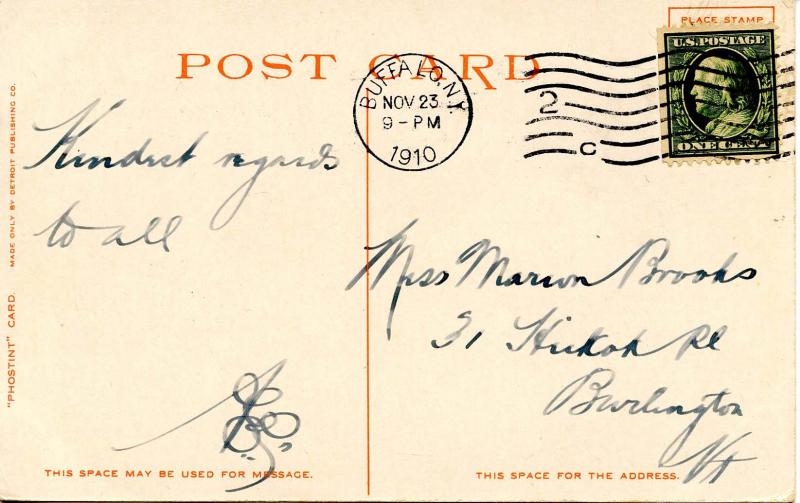 PLACE STAMP
U.S. POSTAGE
ONE CENT
POST CARD
BUFFALO, N.Y.
NOV 23
9-PM
1910
2
C
Kindest regards
to all
Miss Marion Brooks
31 Hickok Pl
Burlington
Vt
THIS SPACE MAY BE USED FOR MESSAGE.
THIS SPACE FOR THE ADDRESS.
"PHOSTINT" CARD. MADE ONLY BY DETROIT PUBLISHING CO.